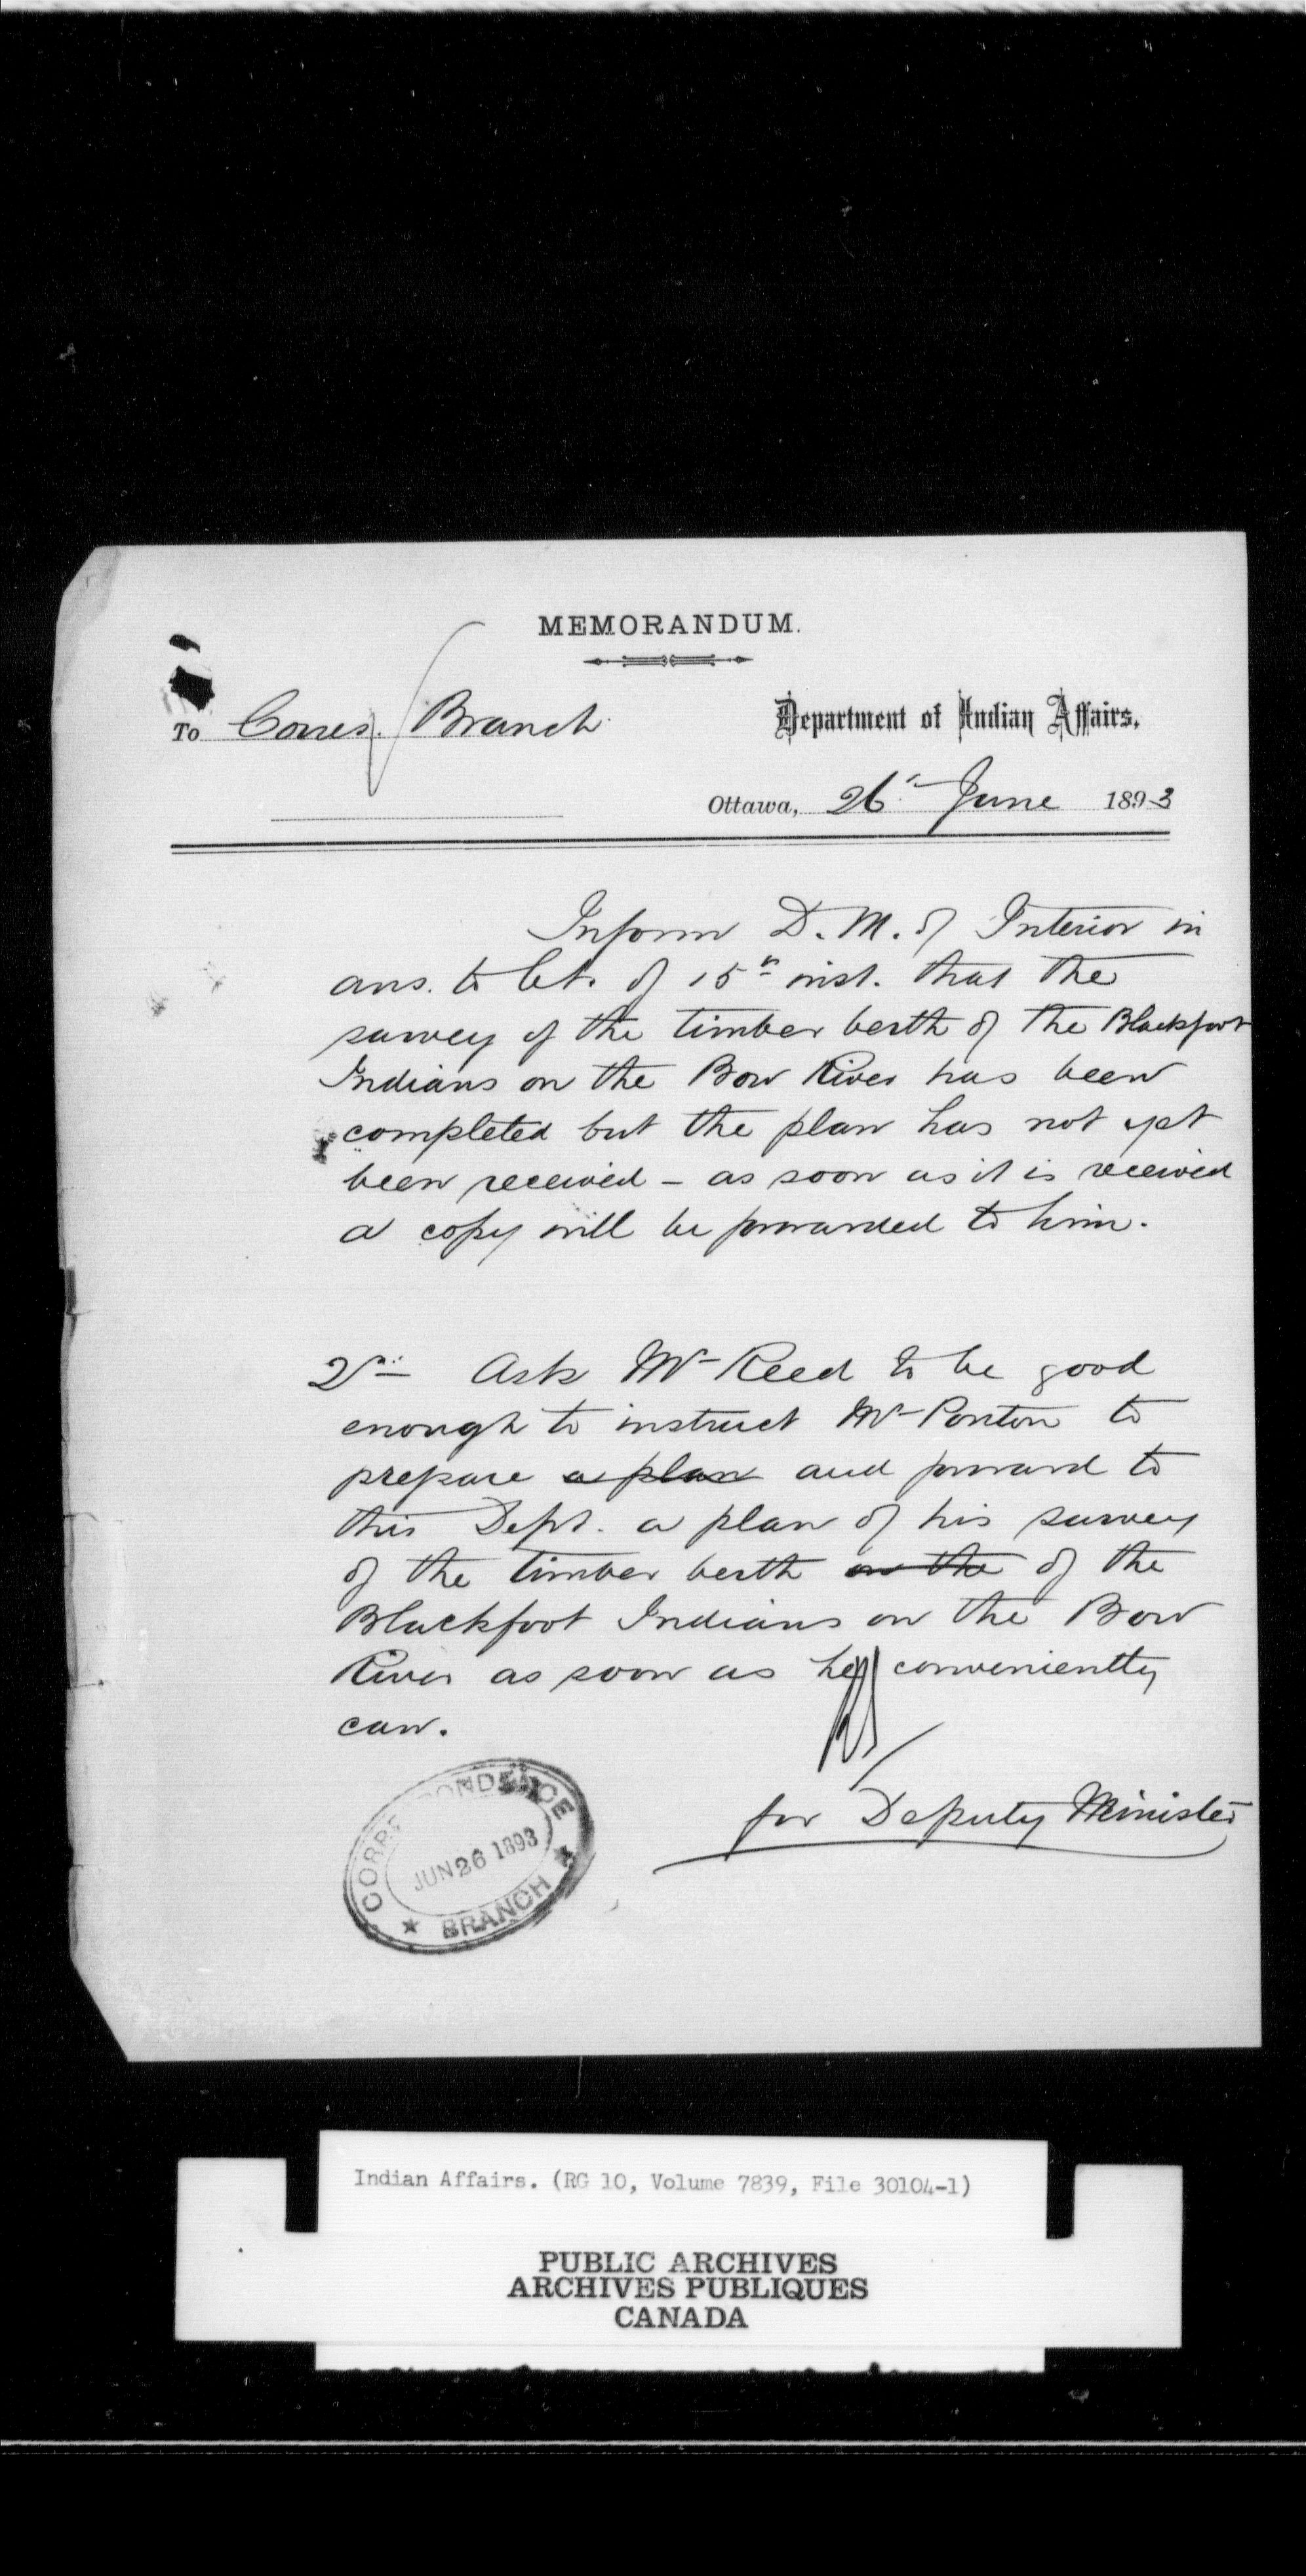 MEMORANDUM.
To Corres. Branch
Department of Indian Affairs,
Ottawa, 26th June 1893
Inform D. M. of Interior in
ans. to let. of 15th inst. that the
survey of the timber berth of the Blackfoot
Indians on the Bow River has been
completed but the plan has not yet
been received - as soon as it is received
a copy will be forwarded to him.
Ask Mr Reed to be good
enough to instruct Mr Ponton to
prepare a plan and forward to
this Dept. a plan of his survey
of the timber berth on the of the
Blackfoot Indians on the Bow
River as soon as he conveniently
can.
for Deputy Minister
CORRESPONDENCE
JUN 26 1893
BRANCH
Indian Affairs. (RG 10, Volume 7839, File 30104-1)
PUBLIC ARCHIVES
ARCHIVES PUBLIQUES
CANADA